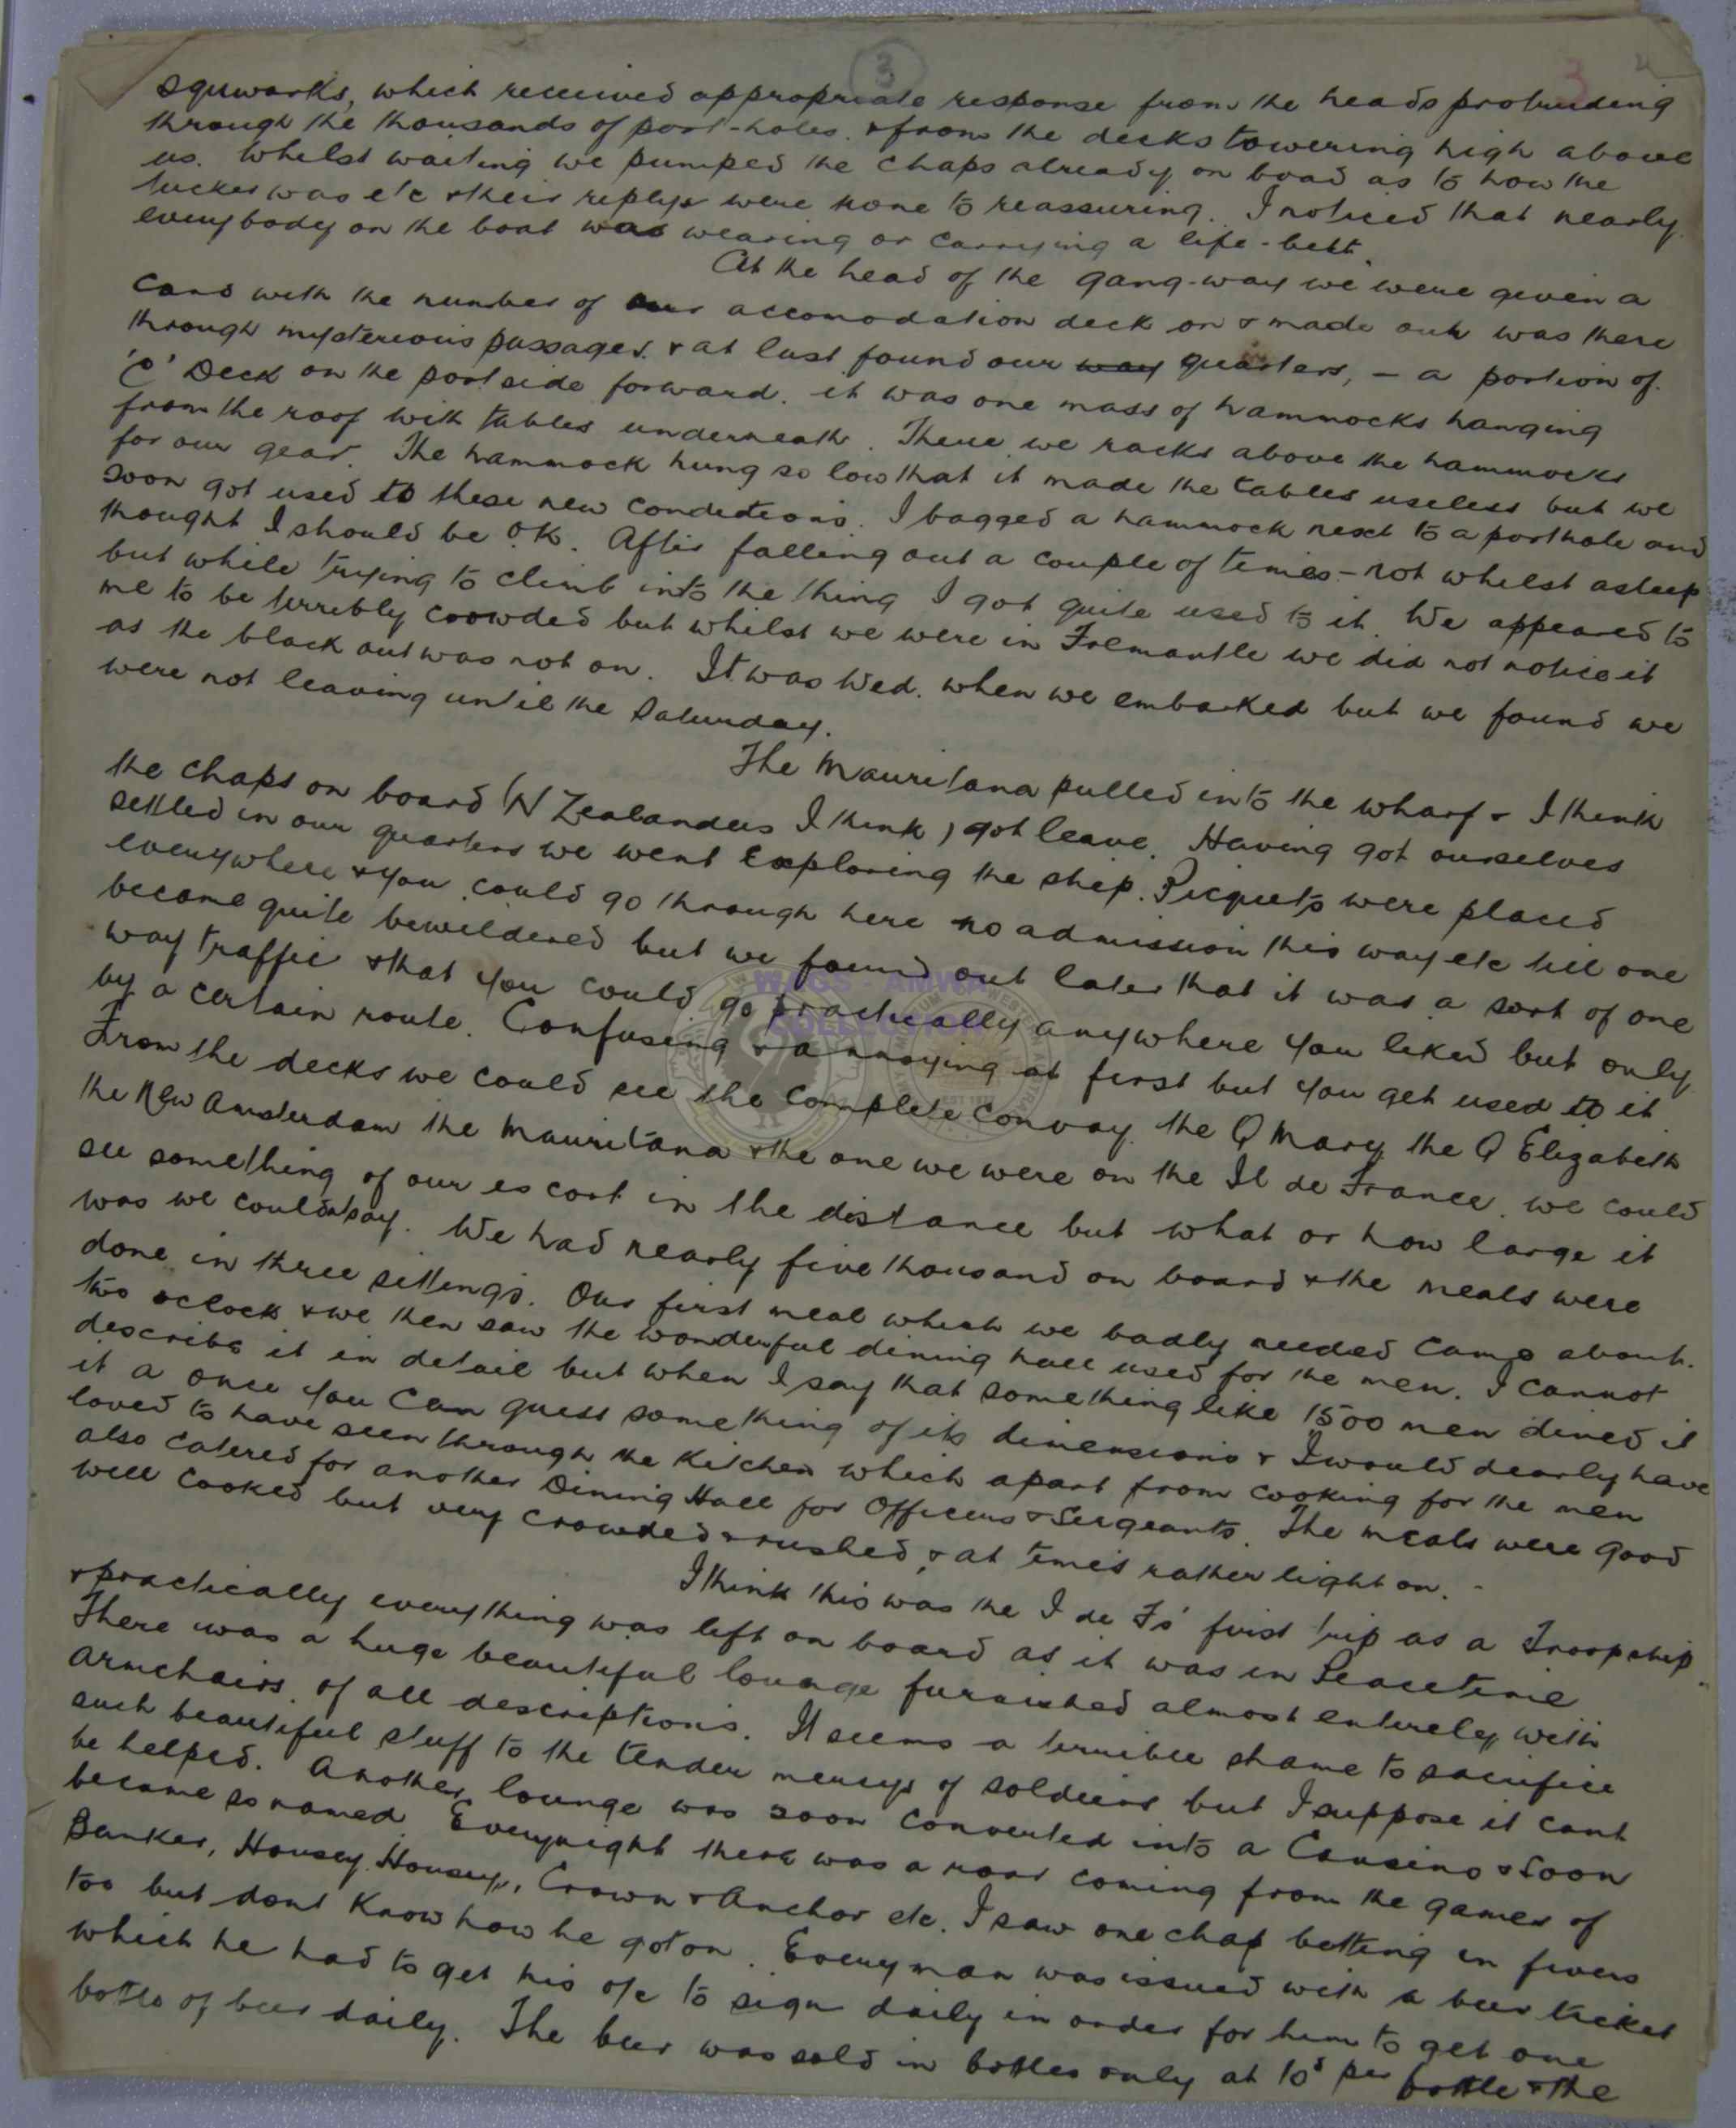 3
3
squwarks, which received appropriate response from the heads protruding
through the thousands of port-holes. & from the decks towering high above
us. Whilst waiting we pumped the chaps already on boad as to how the
tucker was etc & their replys were none to reassuring. I noticed that nearly
everybody on the boat was wearing or carrying a life-belt.
At the head of the gang-way we were given a
card with the number of our accomodation deck on & made our was there
through mysterious passages. & at last found our way quarters, - a portion of
'C' Deck on the port side forward. it was one mass of hammocks hanging
from the roof with tables underneath. There we racks above the hammocks
for our gear. The hammock hung so low that it made the tables useless but we
soon got used to these new conditions. I bagged a hammock next to a porthole and
thought I should be OK. After falling out a couple of times - not whilst asleep
but while trying to climb into the thing I got quite used to it. We appeared to
me to be terribly crowded but whilst we were in Fremantle we did not notice it
as the black out was not on. It was Wed. when we embarked but we found we
were not leaving until the Saturday.
The Mauritana pulled into the wharf & I think
the chaps on board (N Zealanders I think) got leave. Having got ourselves
settled in our quarters we went exploring the ship. Picquets were placed
everywhere & you could go through here no admission this way etc till one
became quite bewildered but we found out later that it was a sort of one
way traffic & that you could go practically anywhere you liked but only
by a certain route. Confusing & annoying at first but you get used to it.
From the decks we could see the complete convoy. the Q Mary, the Q Elizabeth
the New Amsterdam the Mauritana & the one we were on the Il de France. we could
see something of our escort in the distance but what or how large it
was we couldn't say. We had nearly five thousand on board & the meals were
done in three sittings. Our first meal which we badly needed came about.
two oclock & we then saw the wonderful dining hall used for the men. I cannot
describe it in detail but when I say that something like 1500 men dined it
it a once you can guess something of its dimensions & I would dearly have
loved to have seen through the Kitchen which apart from cooking for the men
also catered for another Dining Hall for Officers & Sergeants. The meals were good
well cooked but very crowded & rushed, & at times rather light on. -
I think this was the I de Fs' first trip as a Troopship
& practically everything was left on board as it was in Peacetime
There was a huge beautiful lounge furnished almost entirely with
armchairs. of all descriptions. It seems a terrible shame to sacrifice
such beautiful stuff to the tender mercys of soldiers but I suppose it cant
be helped. Another lounge was soon converted into a Cassino & soon
became so named. Everynight there was a roar coming from the games of
Banker, Housey Housey, Crown & Anchor etc. I saw one chap betting in fivers
too but dont know how he got on. Every man was issued with a beer ticket
which he had to get his o/c to sign daily in order for him to get one
bottle of beer daily. The beer was sold in bottles only at 10d per bottle & the
WAGS - AMWA
COLLECTION